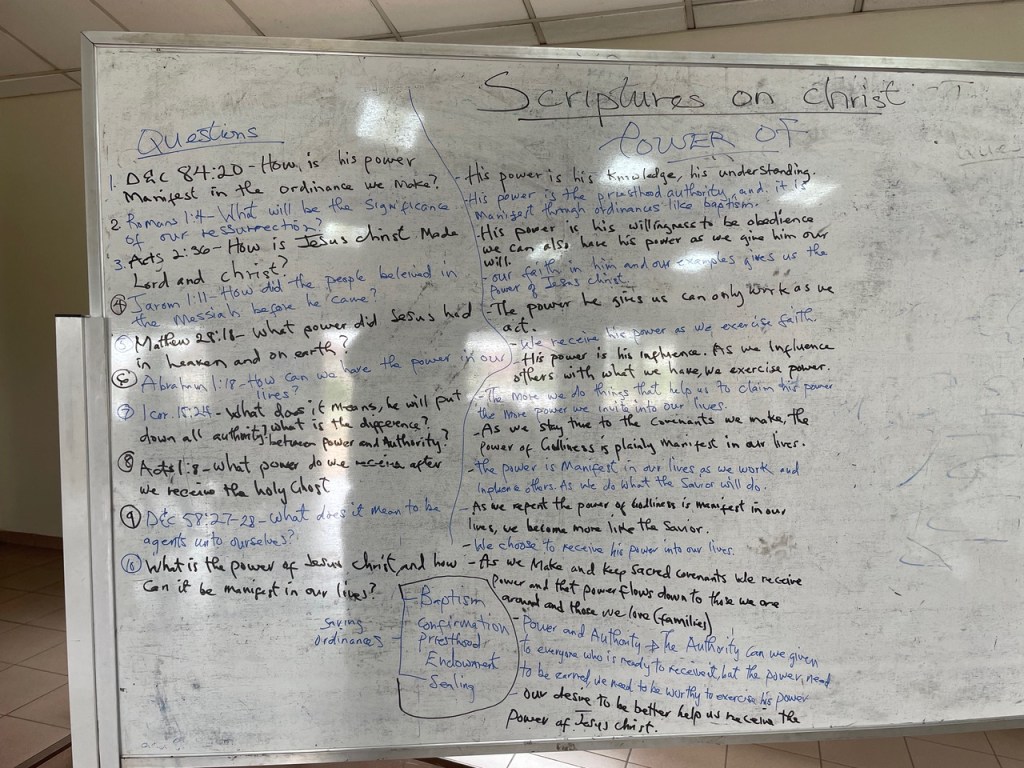 Scriptures on Christ
POWER OF
Questions
1. D&C 84:20 - How is his power
Manifest in the ordinance we Make?
2. Romans 1:4 - What will be the Significance
of our ressurrection?
3. Acts 2:36 - How is Jesus christ Made
Lord and christ?
4 Jarom 1:11 - How did the people beleived in
the Messiah before he came?
5 Mathew 28:18 - What power did Jesus had
in heaven and on earth?
6 Abraham 1:18 - How can we have the power in our
lives?
7 1 cor. 15:24 - What does it means, he will put
down all authority? what is the difference?
between power and Authority?
8 Acts 1:8 - what power do we receive after
we receive the holy Ghost
9 D&C 58:27-28 - What does it mean to be
agents unto ourselves?
10 What is the power of Jesus Christ, and how
Can it be manifest in our lives?
Saving
ordinances
- Baptism
Confirmation
Priesthood
Endowment
- Sealing
- His power is his knowledge, his understanding.
- His power is the priesthood authority, and it is
Manifest through ordinances like baptism.
- His power is his willingness to be obedience
we can also have his power as we give him our
will.
- our faith in him and our examples gives us the
Power of Jesus christ.
- The power he gives us can only work as we
act.
- We receive his power as we exercise faith.
- His power is his influence. As we influence
others with what we have, we exercise power.
- The more we do things that help us to claim his power
the more power we invite into our lives.
- As we stay true to the covenants we make, the
power of Godliness is plainly manifest in our lives.
- The power is Manifest in our lives as we work and
others. As we do what the Savior will do.
- As we repent the power of Godliness is manifest in our
lives, we become more like the Savior.
- We choose to receive his power into our lives.
- As we Make and keep Sacred covenants we receive
Power and that power flows down to those we are
around and those we love (families)
- Power and Authority → The Authority Can we given
to everyone who is ready to receive it, but the power, need
to be earned, we need to be worthy to exercise his power
- our desire to be better help us receive the
Power of Jesus christ.